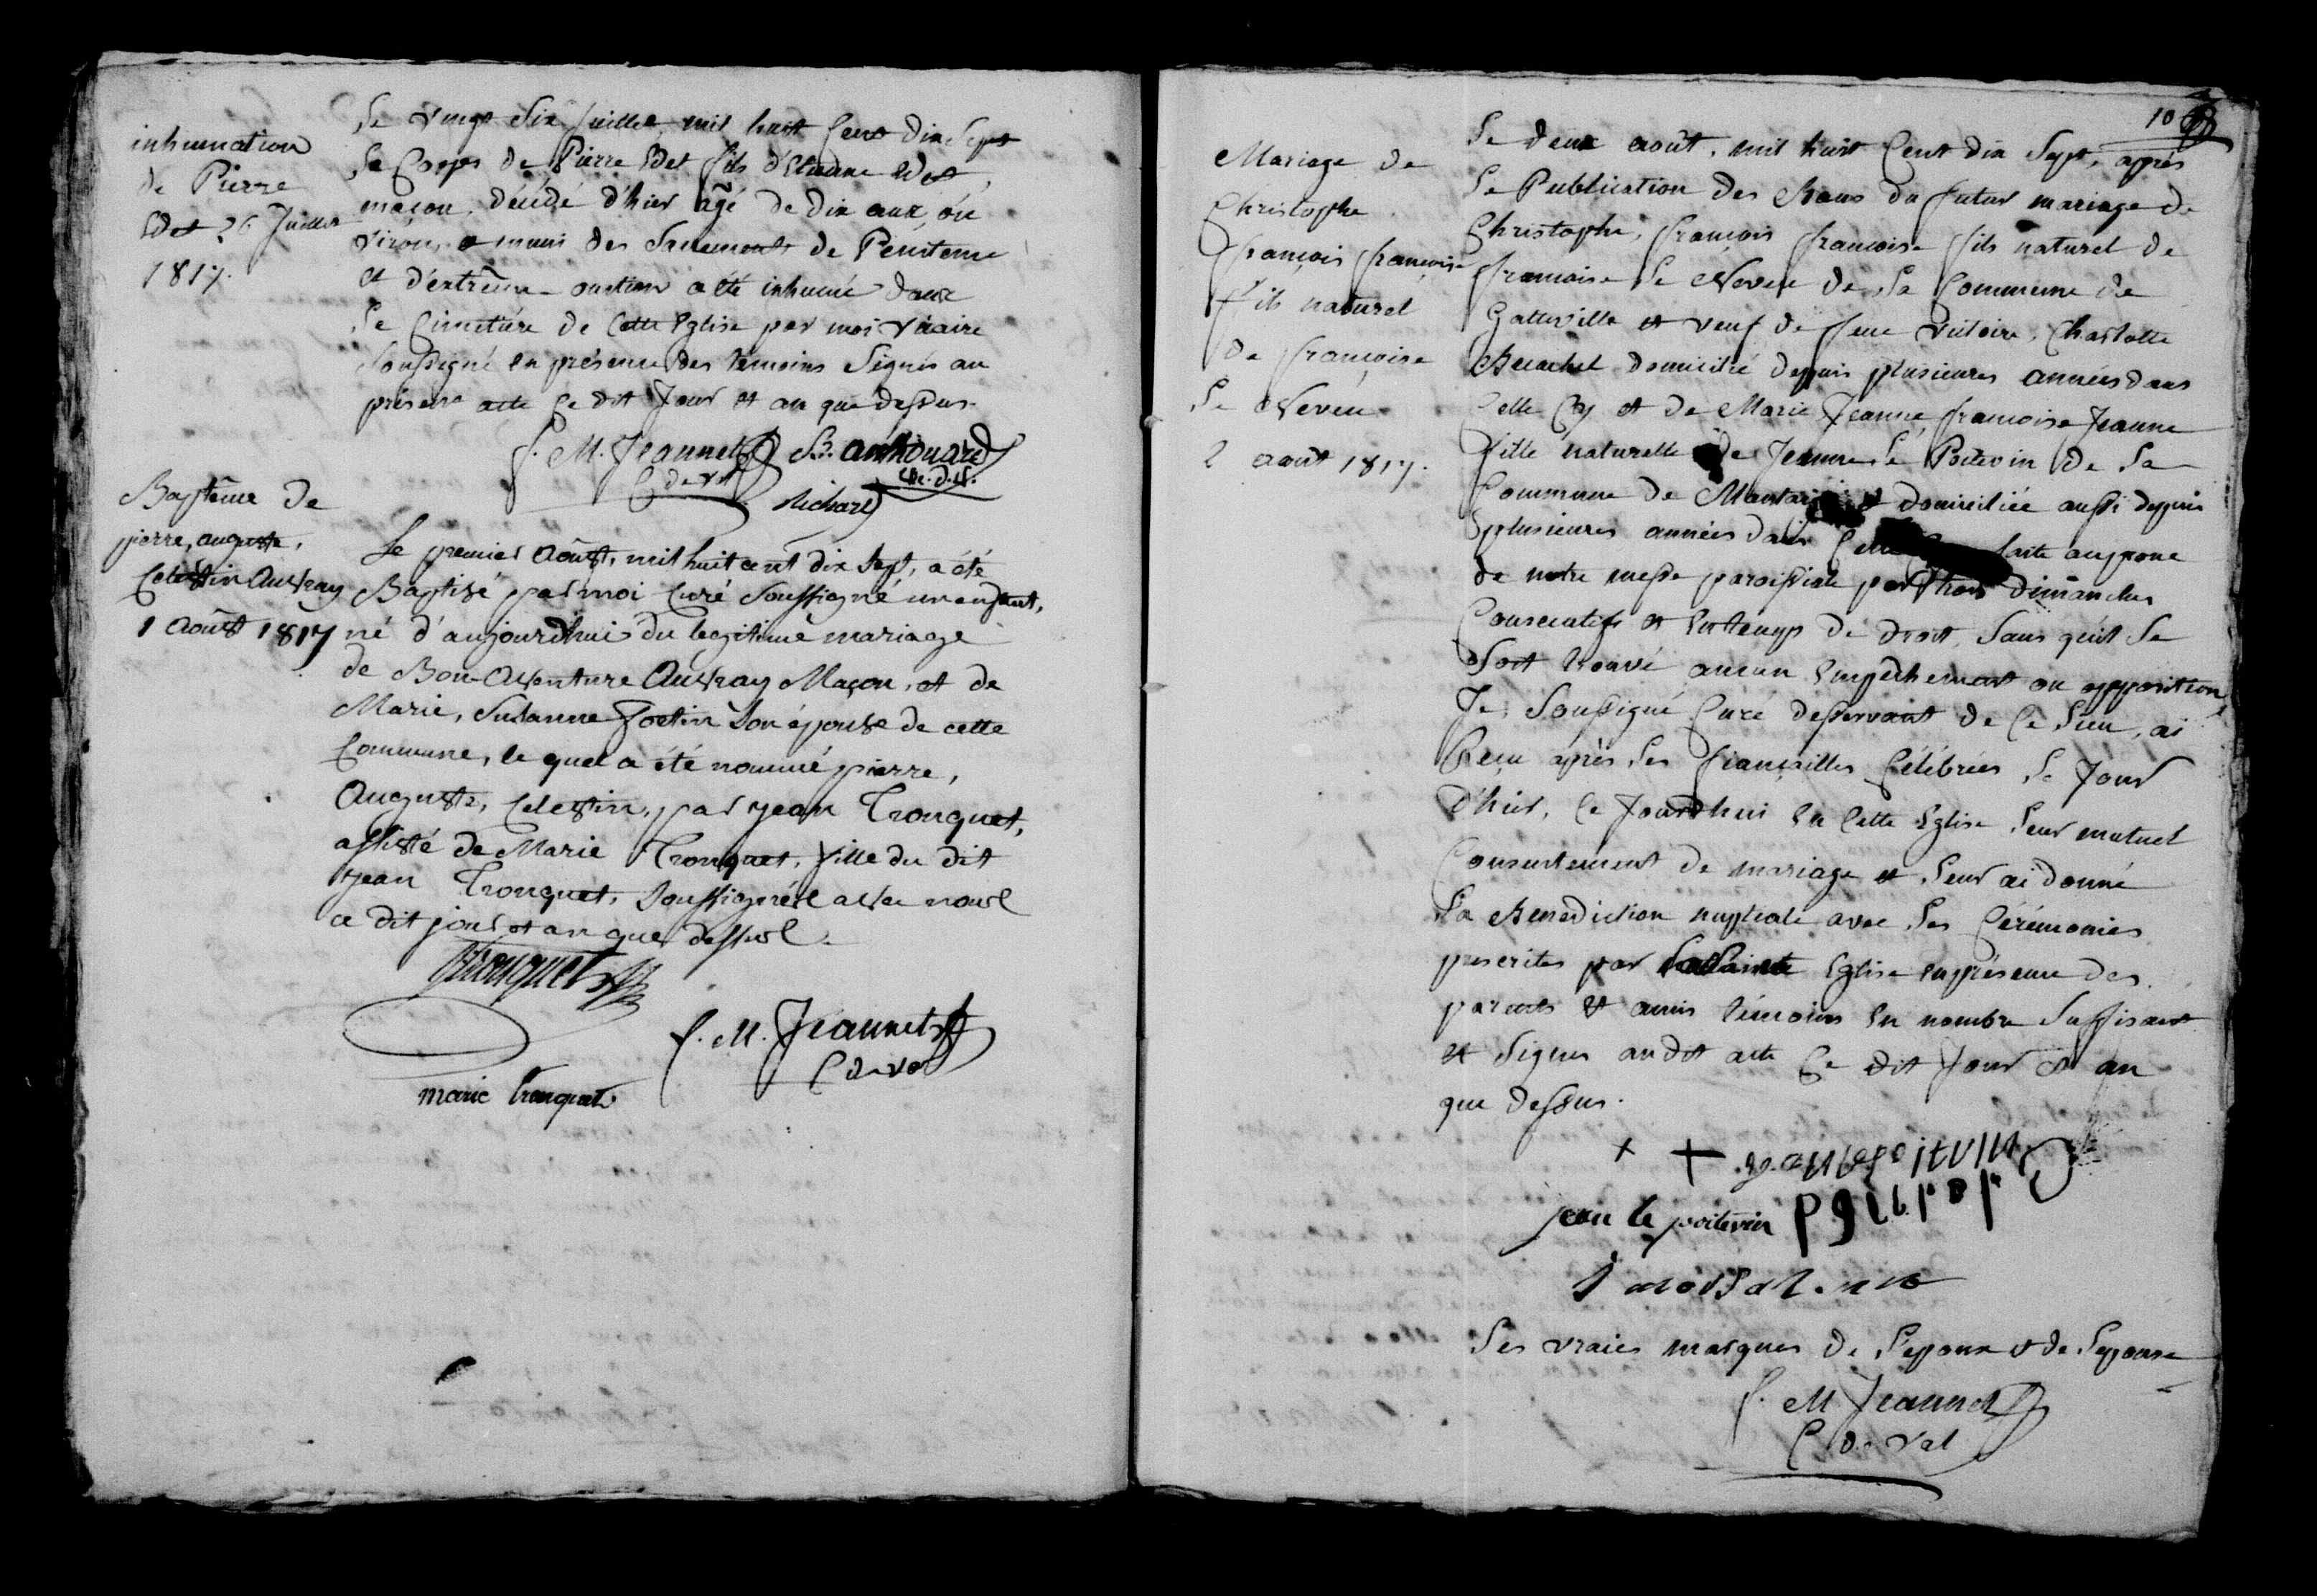 inhumation
de Pierre
Edet 26 Juillet
1817.
Le vingt Six Juillet mil huit Cent dix Sept
Le Corps de Pierre Edet fils d'Etienne Edet,
maçon, décédé d'hier âgé de dix ans, en
viron, et muni des Sacrements de Penitence
et d'extrême-onction a été inhumé dans
Le Cimetière de Cette Eglise par moi Vicaire
Soussigné en présence des témoins Signés au
présent acte Ce dit Jour et an que dessus.
f. M. Jeannet B. anthouard
C de Val vic. d. V.
Richard
Baptême de
pierre, auguste,
Celestin Auvray
1 Août 1817
Le premier Août, mil huit cent dix Sept, a été
Baptisé par moi Curé Soussigné un enfant,
né d'aujourdhui du legitime mariage
de Bon-Aventure Auvray Maçon, et de
Marie, Susanne fortin Son épouse de cette
Commune, le quel a été nommé pierre,
Auguste, Celestin, par jean Tronquet,
assisté de Marie Tronquet, fille du dit
jean Tronquet, Soussignés avec nous
ce dit jour et an que dessus.
Tronquet
f. M. Jeannet
C de Val
marie tronquet
10
Mariage de
Christophe
françois françoise
fils naturel
de françoise
Le Neveu
2 aout 1817.
Le deux août, mil huit Cent dix Sept, après
La Publication des Bans du futur mariage de
Christophe, françois françoise fils naturel de
francoise Le Neveu de La Commune de
Gatteville et veuf de feue Victoire, Charlotte
domicilié depuis plusieures années dans
Celle Cy et de Marie Jeanne, francoise Jeanne
fille naturelle de Jeanne Le Poitevin de La
Commune de et domiciliée aussi depuis
plusieures années dans faite au prone
de notre messe paroissiale par trois dimanches
Consecutifs et en temps de droit, Sans qu'il Se
Soit trouvé aucun Empêchement ou opposition,
Je, Soussigné Curé desservant de Ce Lieu, ai
Reçu après Les fiançailles Célébrées Le Jour
d'hier, Ce Jourdhui en Cette Eglise Leur mutuel
Consentement de mariage et Leur ai donné
La Benediction nuptiale avec Les Cérémonies
prescrites par La Sainte Eglise en présence des
parents et amis témoins en nombre Suffisant
et Signés au dit acte Ce dit Jour et an
que dessus.
+ +
jean le poitevin
Les vraies marques de L'epoux et de Lepouse
f. M Jeannet
C de Val